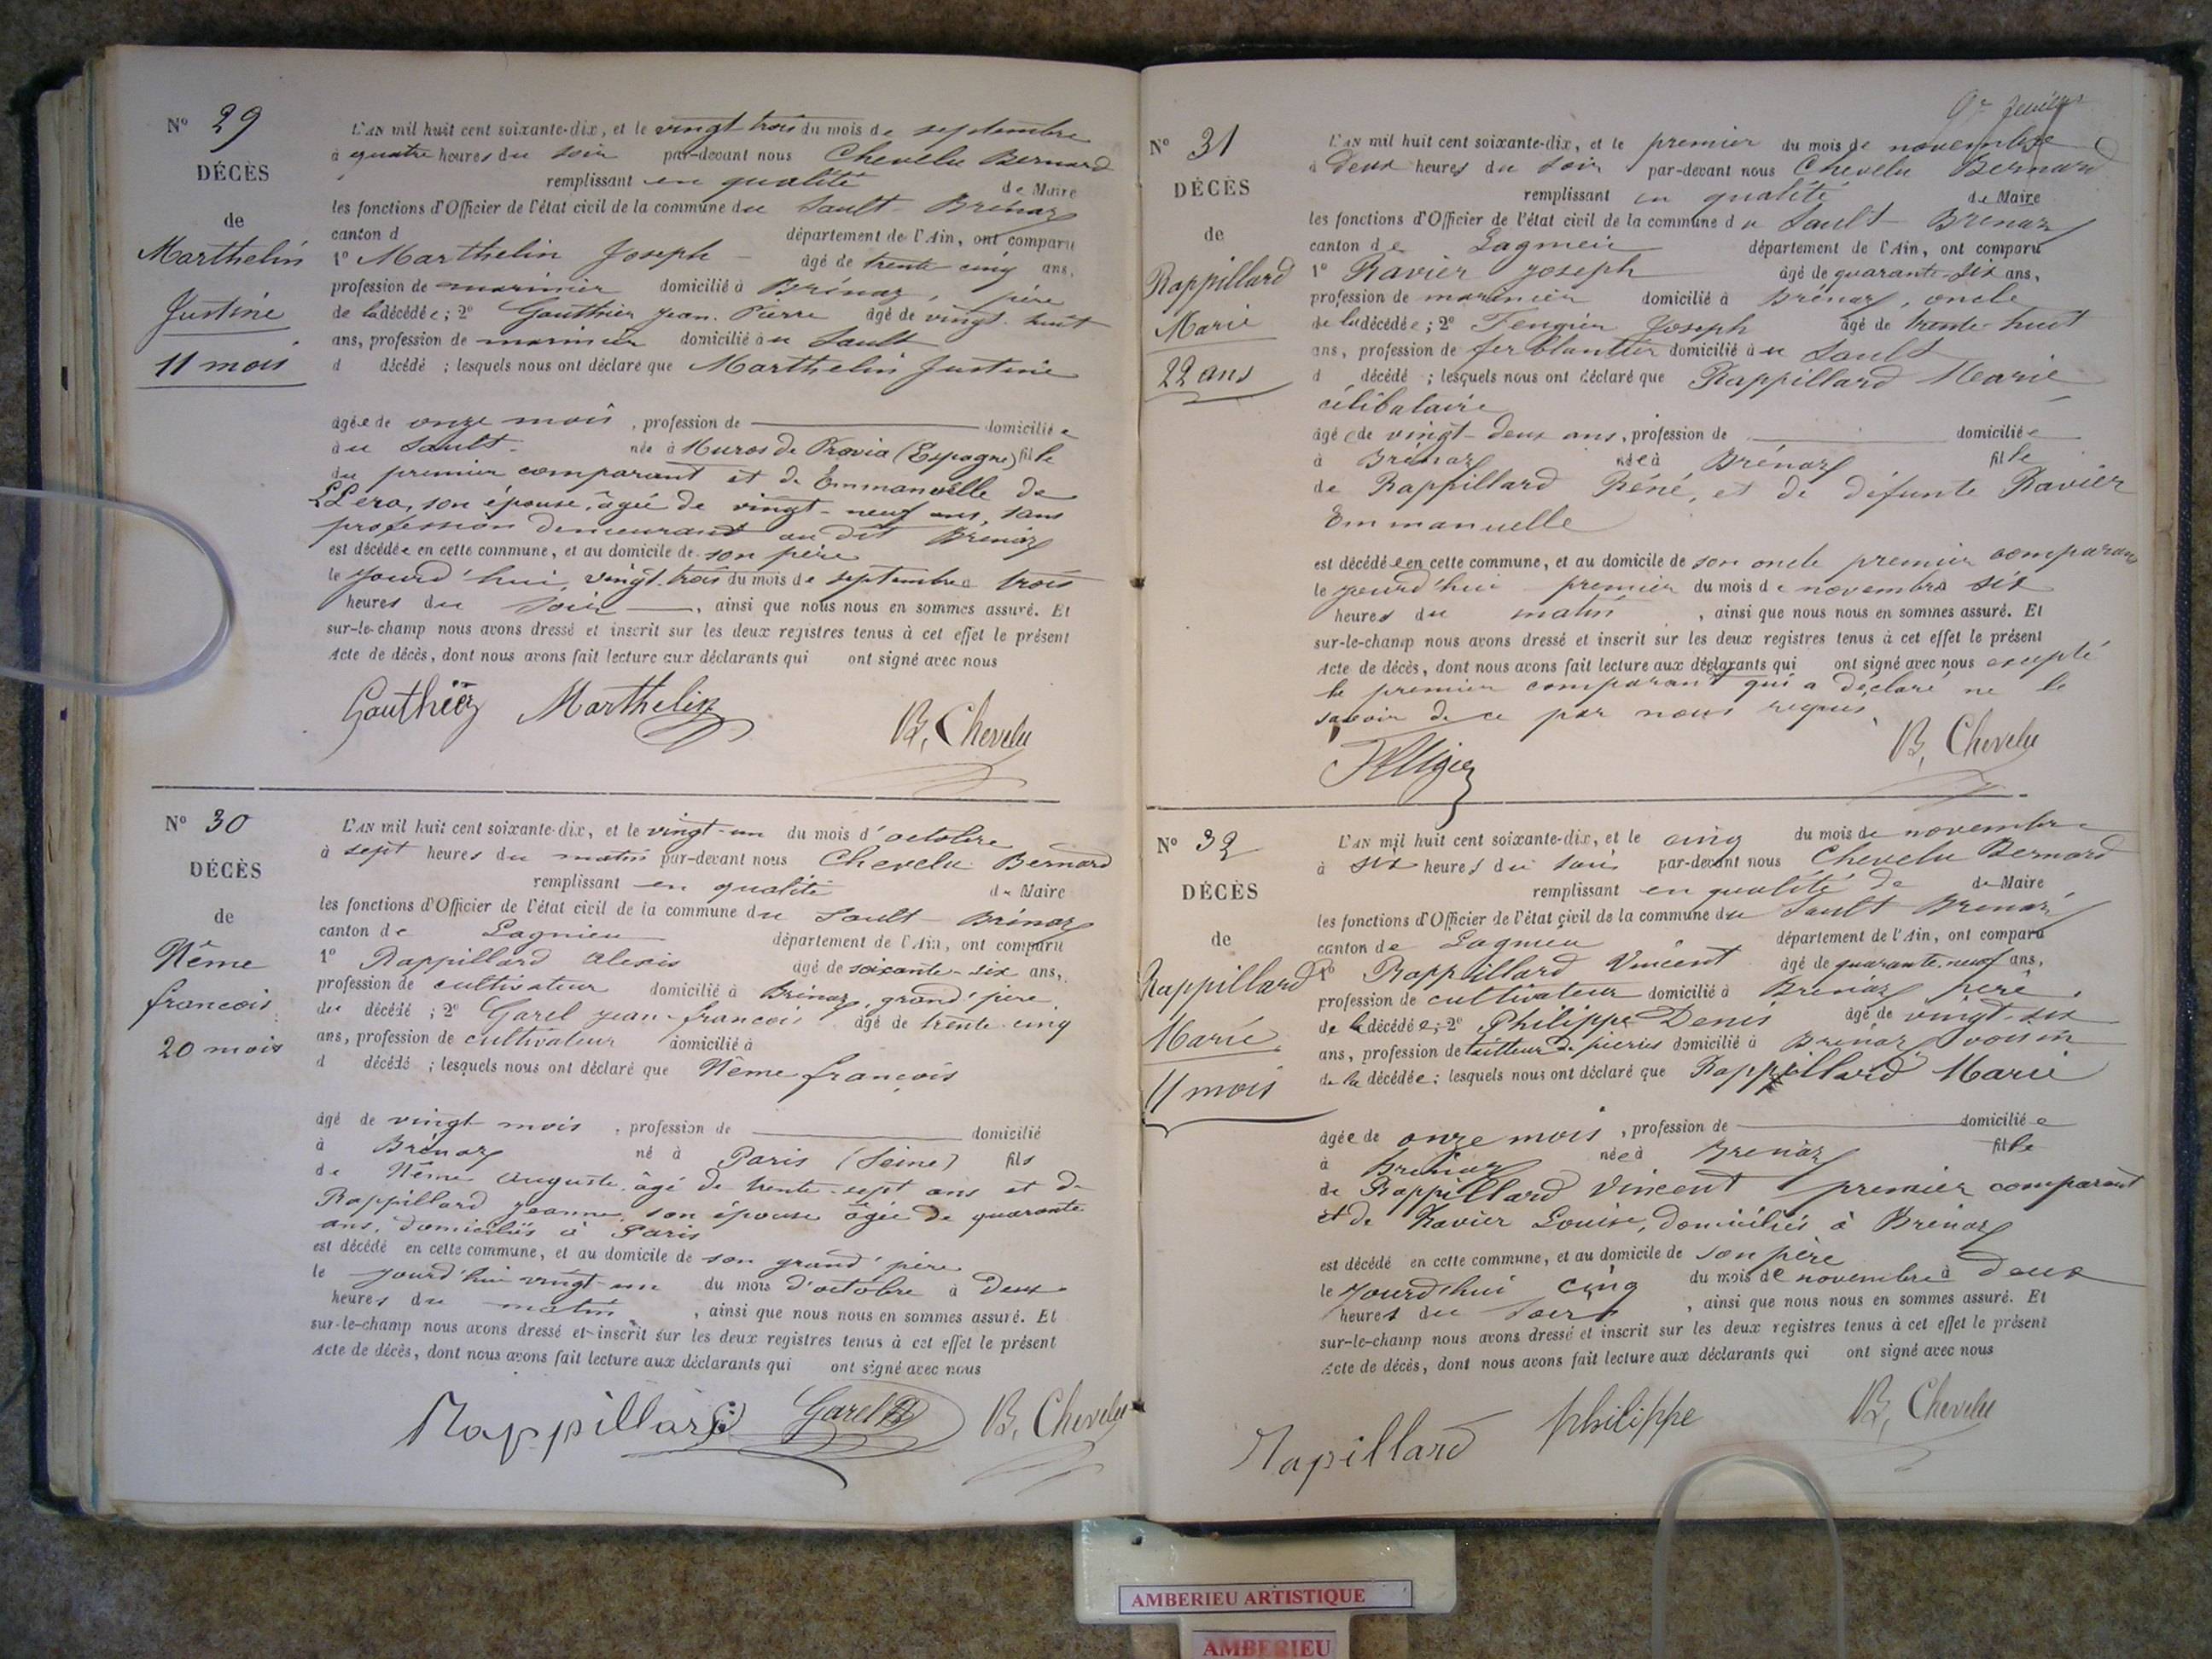 Nº 29
DÉCÈS
de
Marthelin
Justine
11 mois
L'AN mil huit cent soixante-dix, et le vingt trois du mois de septembre
à quatre heures du soir par-devant nous Chevelu Bernard
remplissant en qualité de Maire
les fonctions d'Officier de l'état civil de la commune du Sault-Brénaz
canton d département de l'Ain, ont comparu
1º Marthelin Joseph âgé de trente cinq ans,
profession de marinier domicilié à Brénaz, père
de la décédée; 2º Gauthier Jean Pierre âgé de vingt huit
ans, profession de marinier domicilié au Sault
d décédé ; lesquels nous ont déclaré que Marthelin Justine
âgée de onze mois, profession de domiciliée
au Sault née à Muros de Pravia (Espagne) fille
du premier comparant et de Emmanuelle de
LLera, son épouse, âgée de vingt-neuf ans, sans
profession demeurant au dit Brénaz
est décédée en cette commune, et au domicile de son père
le jourd'hui vingt trois du mois de septembre à trois
heures du soir, ainsi que nous nous en sommes assuré. Et
sur-le-champ nous avons dressé et inscrit sur les deux registres tenus à cet effet le présent
Acte de décès, dont nous avons fait lecture aux déclarants qui ont signé avec nous
Gauthier Marthelin B, Chevelu
Nº 30
DÉCÈS
de
Nême
francois
20 mois
L'AN mil huit cent soixante-dix, et le vingt-un du mois d'octobre
à sept heures du matin par-devant nous Chevelu Bernard
remplissant en qualité de Maire
les fonctions d'Officier de l'état civil de la commune du Sault-Brénaz
canton de Lagnieu département de l'Ain, ont comparu
1º Rappillard Alexis âgé de soixante-six ans,
profession de cultivateur domicilié à Brénaz, grand'père
du décédé ; 2º Garel jean-francois âgé de trente-cinq
ans, profession de cultivateur domicilié à
d décédé ; lesquels nous ont déclaré que Nême françois
âgé de vingt mois, profession de domicilié
à Brénaz né à Paris (Seine) fils
de Nême Auguste âgé de trente-sept ans et de
Rappillard Jeanne, son épouse âgée de quarante
ans, domiciliés à Paris
est décédé en cette commune, et au domicile de son grand'père
le jourd'hui vingt-un du mois d'octobre à Deux
heures du matin, ainsi que nous nous en sommes assuré. Et
sur-le-champ nous avons dressé et inscrit sur les deux registres tenus à cet effet le présent
Acte de décès, dont nous avons fait lecture aux déclarants qui ont signé avec nous
Rappillard Garel B, Chevelu
Nº 31
DÉCÈS
de
Rappillard
Marie
22 ans
L'AN mil huit cent soixante-dix, et le premier du mois de novembre
à Deux heures du soir par-devant nous Chevelu Bernard
remplissant en qualité de Maire
les fonctions d'Officier de l'état civil de la commune du Sault Brénaz
canton de Lagnieu département de l'Ain, ont comparu
1º Ravier Joseph âgé de quarante-six ans,
profession de marinier domicilié à Brénaz, oncle
de la décédée; 2º Joseph âgé de trente-huit
ans, profession de ferblantier domicilié au Sault
d décédé ; lesquels nous ont déclaré que Rappillard Marie
célibataire
âgée de vingt-deux ans, profession de domiciliée
à Brénaz née à Brénaz fille
de Rappillard Réné, et de défunte Ravier
Emmanuelle
est décédée en cette commune, et au domicile de son oncle premier comparant
le jourd'hui premier du mois de novembre six
heures du matin, ainsi que nous nous en sommes assuré. Et
sur-le-champ nous avons dressé et inscrit sur les deux registres tenus à cet effet le présent
Acte de décès, dont nous avons fait lecture aux déclarants qui ont signé avec nous excepté
le premier comparant qui a déclaré ne le
savoir de ce par nous requis
B, Chevelu
Nº 32
DÉCÈS
de
Rappillard
Marie
11 mois
L'AN mil huit cent soixante-dix, et le cinq du mois de novembre
à six heures du soir par-devant nous Chevelu Bernard
remplissant en qualité de de Maire
les fonctions d'Officier de l'état civil de la commune du Sault Brénaz
canton de Lagnieu département de l'Ain, ont comparu
1º Rappillard Vincent âgé de quarante-neuf ans,
profession de cultivateur domicilié à Brénaz père
de la décédée; 2º Philippe Denis âgé de vingt-six
ans, profession de tailleur de pierres domicilié à Brénaz voisin
de la décédée; lesquels nous ont déclaré que Rappillard Marie
âgée de onze mois, profession de domiciliée
à Brénaz née à Brénaz fille
de Rappillard Vincent premier comparant
et de Ravier Louise, domiciliés à Brénaz
est décédé en cette commune, et au domicile de son père
le jourd'hui cinq du mois de novembre à deux
heures du soir, ainsi que nous nous en sommes assuré. Et
sur-le-champ nous avons dressé et inscrit sur les deux registres tenus à cet effet le présent
Acte de décès, dont nous avons fait lecture aux déclarants qui ont signé avec nous
Rapillard philippe B, Chevelu
AMBERIEU ARTISTIQUE
AMBERIEU